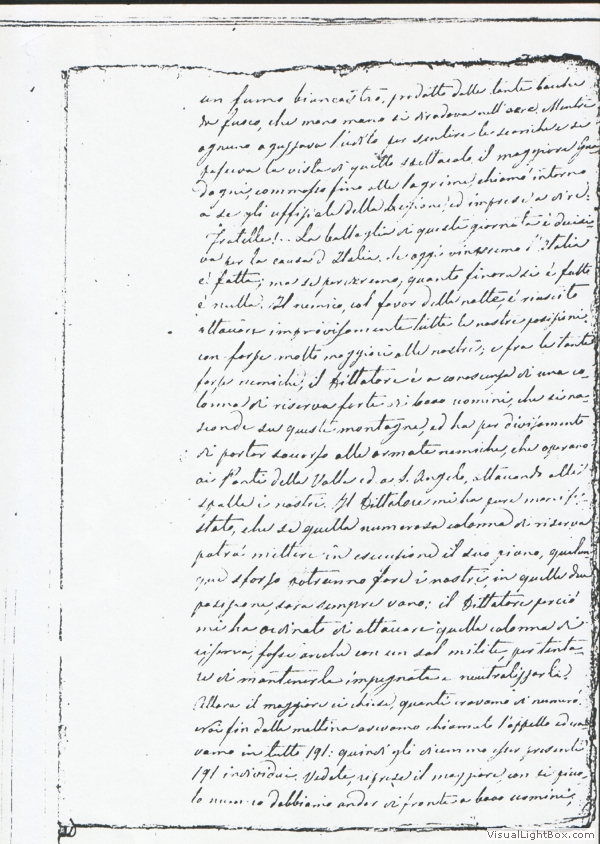 un fumo biancastro, prodotto dalle tante bocche
da fuoco, che mano mano si diradava nell'aere. Mentre
ognuno aguzzava l'udito per sentire le scariche e si
pasceva la vista di quello spettacolo, il maggiore
dagni, commosso fino alle lagrime, chiamò intorno
a se gli uffiziali della Legione, ed imprese a dire:
Fratelli!... La battaglia di questa giornata è decisi=
va per la causa d'Italia. Se oggi vinceremo l'Italia
è fatta; ma se perderemo, quanto finora si è fatto
è nulla. Il nemico, col favor della notte, è riuscito
attaccare improvisamente tutte le nostre posizioni
con forze molto maggiori alle nostre; e fra le tante
forze nemiche, il Dittatore è a conoscenza di una co=
lonna di riserva forte di 6000 uomini, che si na=
sconde su queste montagne, ed ha per divisamento
di portar soccorso alle armate nemiche, che operano
ai Ponti della Valle ed a S. Angelo, attaccando alle
spalle i nostri. Il Dittatore mi ha pure manife=
stato, che se quella numerosa colonna di riserva
potrà mettere in esecuzione il suo piano, qualun=
que sforzo potranno fare i nostri, in quelle due
posizione, sarà sempre vano: il Dittatore perciò
mi ha ordinato di attaccare quella colonna di
riserva, fosse anche con un sol milite, per tenta=
re di mantenerla impegnata e neutralizzarla.
Allora il maggiore ci chiese, quanti eravamo di numero:
noi fin dalla mattina avevamo chiamato l'appello ed era=
vamo in tutto 191: quindi gli dicemmo esser presenti
191 individui. Vedete, riprese il maggiore, con sì picco=
lo numero dobbiamo andar di fronte a 6000 uomini;
VisualLightBox.com